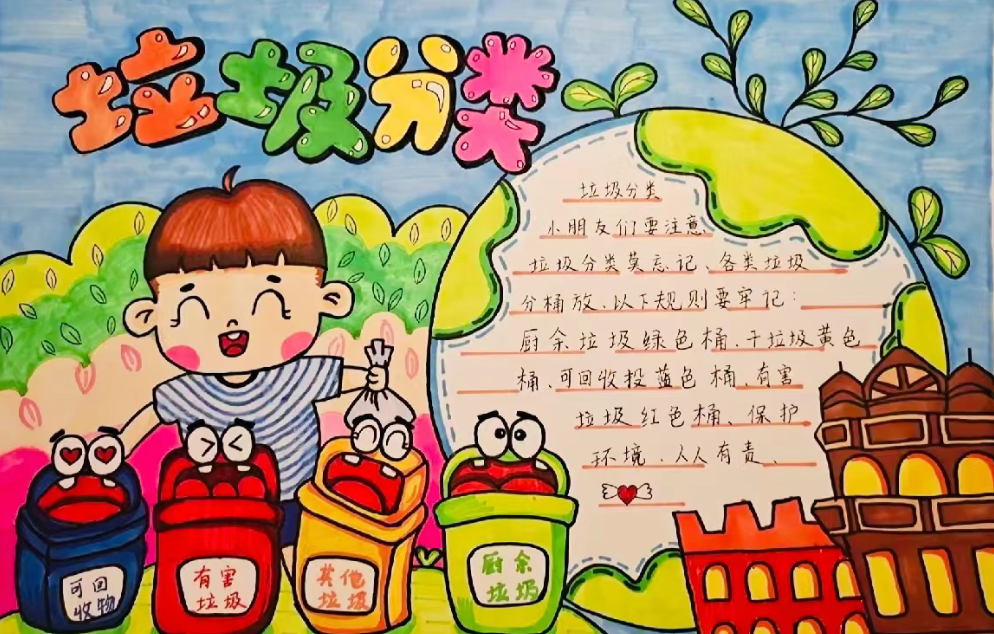 垃圾分类
垃圾分类
小朋友们要注意
垃圾分类莫忘记、各类垃圾
分桶放、以下规则要牢记：
厨余垃圾绿色桶、干垃圾黄色
桶、可回收投蓝色桶、有害
垃圾红色桶、保护
环境、人人有责、
可回
收物
有害
垃圾
其他
垃圾
厨余
垃圾